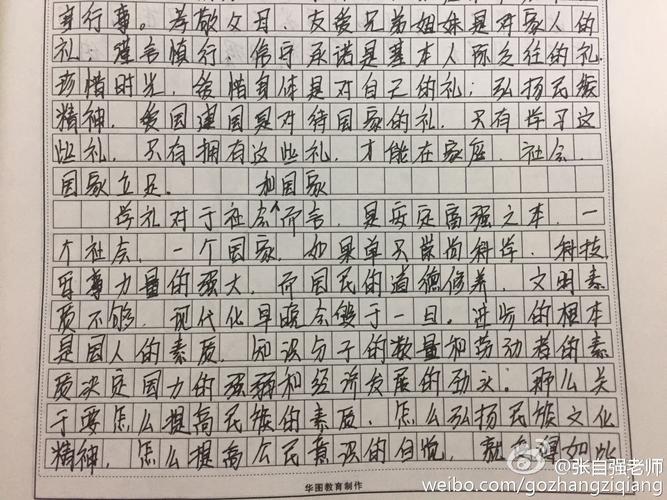 事行事。孝敬父母，友爱兄弟姐妹是对家人的
礼；谨言慎行，信守承诺是基本人际交往的礼
珍惜时光，爱惜身体是对自己的礼；弘扬民族
精神，爱国建国是对待国家的礼。只有学习这
些礼，只有拥有这些礼，才能在家庭、社会、
国家立足。 和国家
学礼对于社会而言，是安定富强之本，一
个社会，一个国家，如果单只崇尚科学，科技
至尊力量的强大，而国民的道德修养，文明素
质不够，现代化早晚会毁于一旦。进步的根本
是国人的素质，知识分子的数量和劳动者的素
质决定国力的强弱和经济发展的劲头。那么关
于要怎么提高民族的素质，怎么弘扬民族文化
精神，怎么提高公民意识的自觉，就如此
华图教育制作
@张自强老师
weibo.com/gozhangziqiang